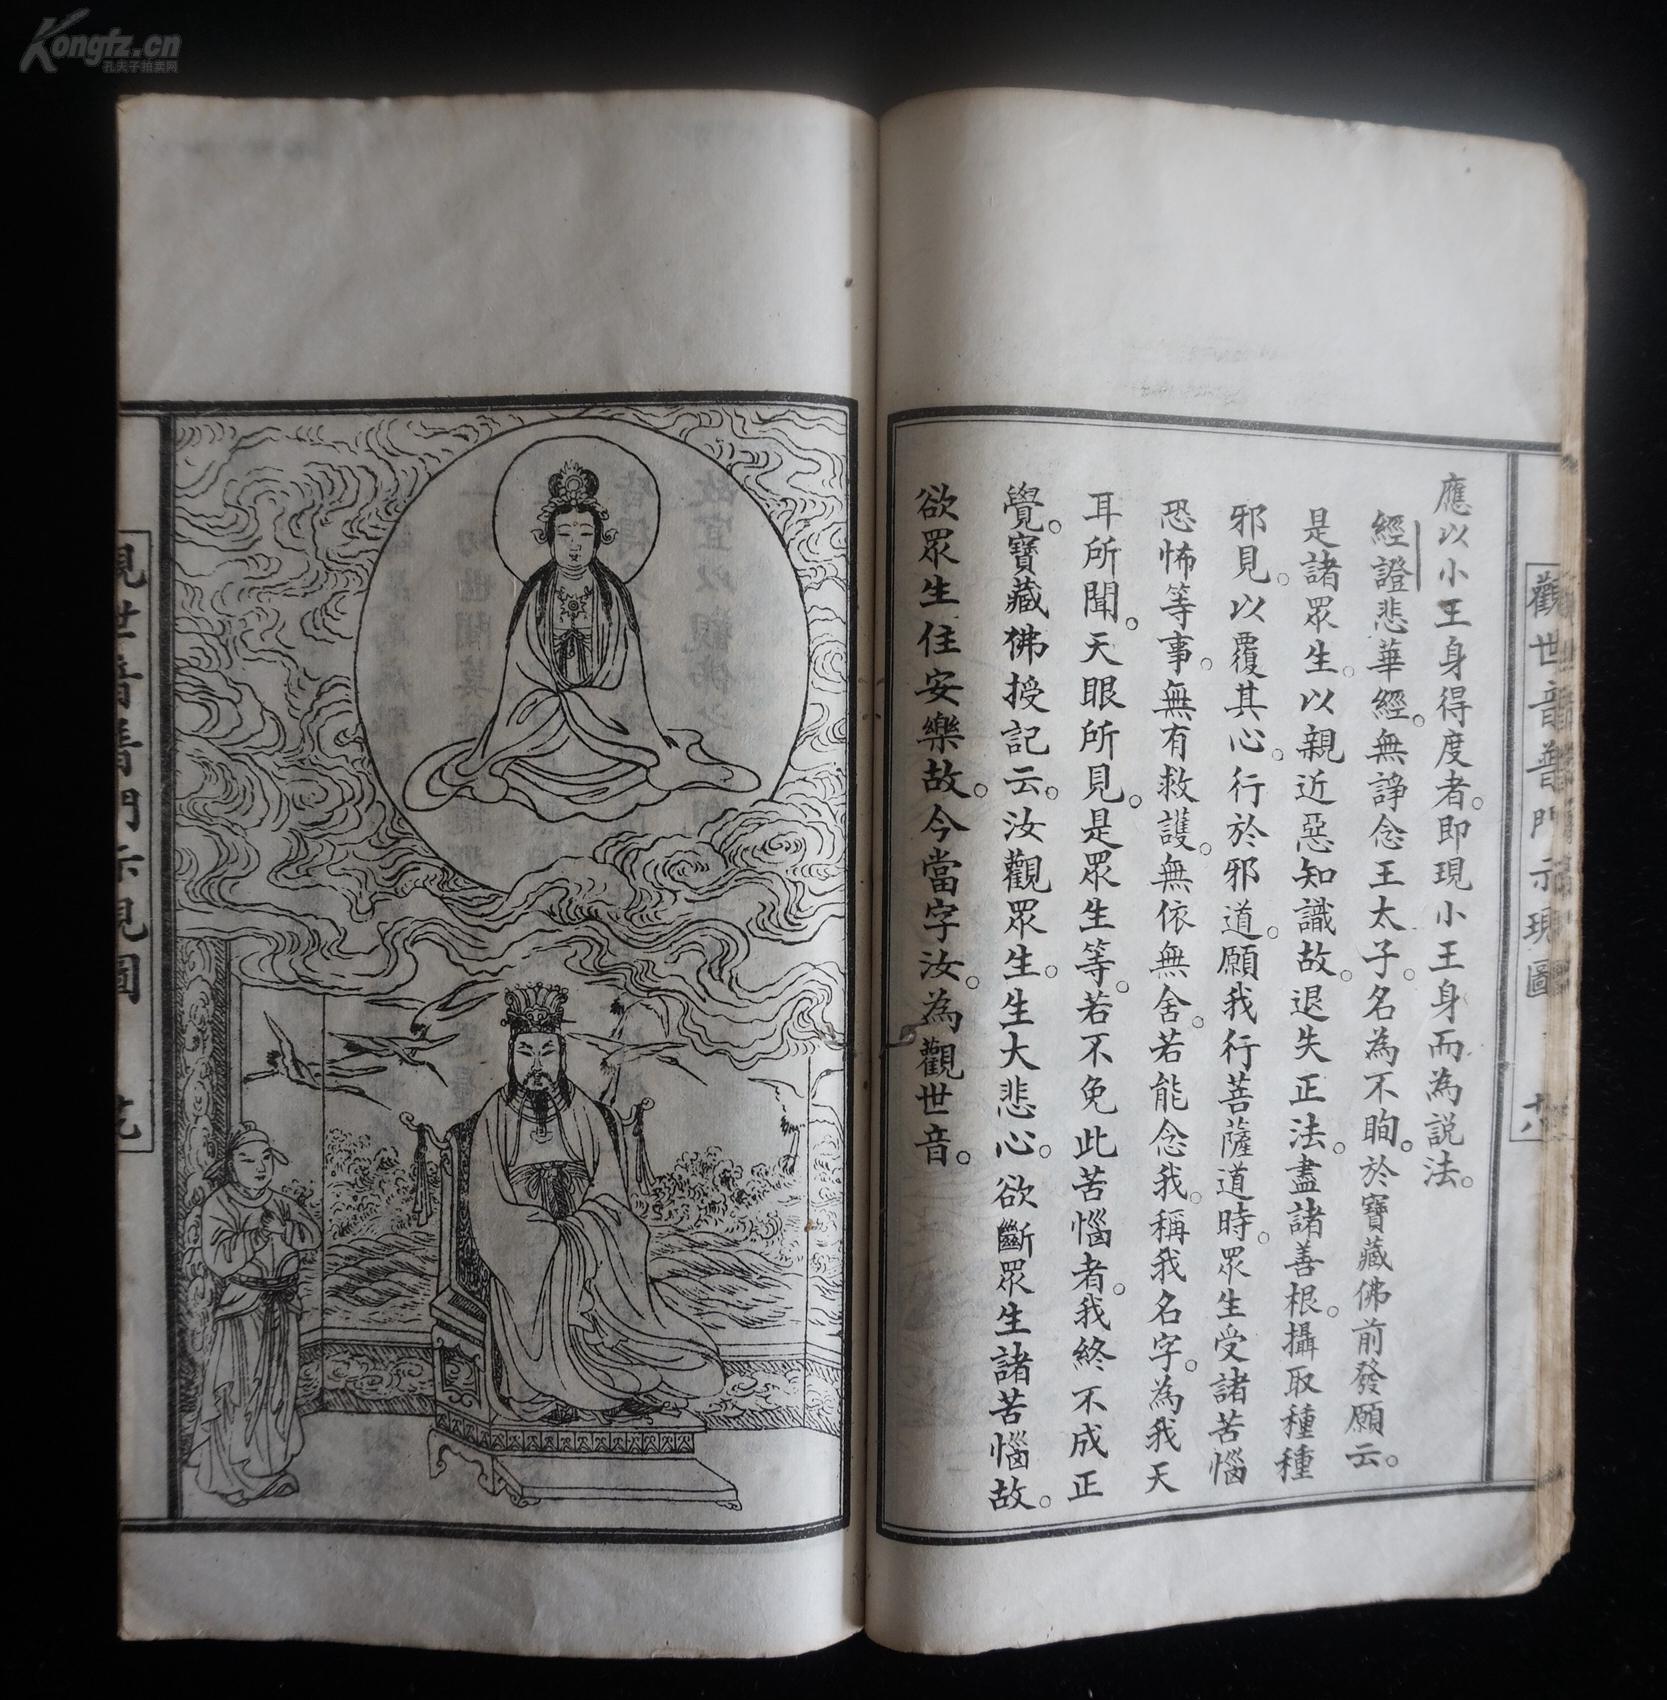 Kongfz.cn
孔夫子拍卖网
觀世音普門示現圖
十八
應以小王身得度者。即現小王身而為說法。
經證悲華經。無諍念王太子。名為不眴。於寶藏佛前發願云。
是諸眾生。以親近惡知識故。退失正法。盡諸善根。攝取種種
邪見。以覆其心。行於邪道。願我行菩薩道時。眾生受諸苦惱
恐怖等事。無有救護。無依無舍。若能念我。稱我名字。為我天
耳所聞。天眼所見。是眾生等。若不免此苦惱者。我終不成正
覺。寶藏佛授記云。汝觀眾生。生大悲心。欲斷眾生諸苦惱故。
欲眾生住安樂故。今當字汝。為觀世音。
觀世音普門示現圖